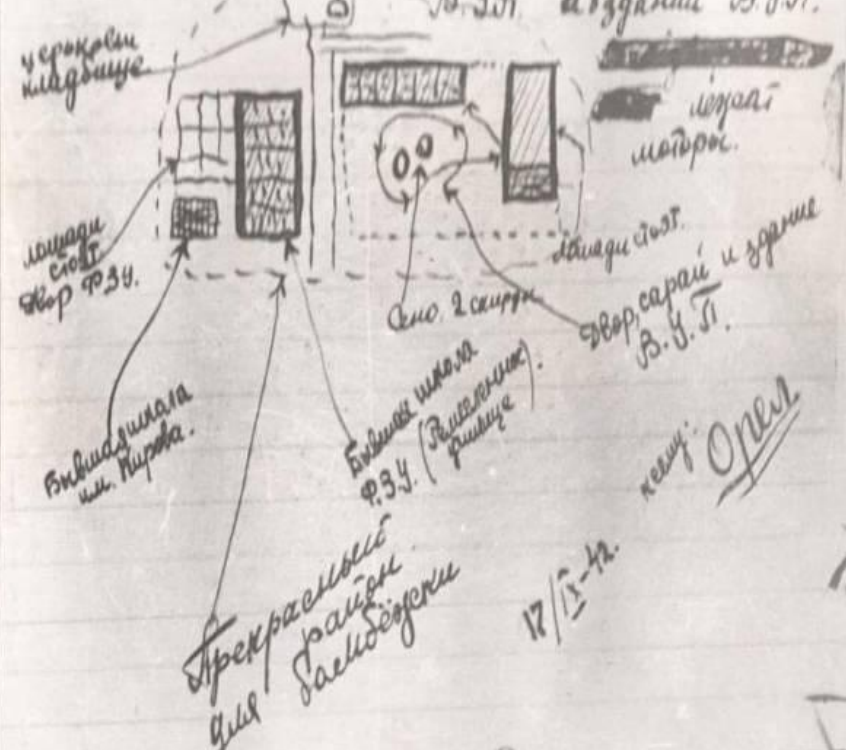 В. У. П. и здании В. У. П.
церковь
кладбище
лежат
моторы.
лошади
стоят
Двор Ф.З.У.
лошади стоят.
Сено. 2 скирды.
Двор, сарай и здание
В.У.П.
Бывшая школа
им. Кирова.
Бывшая школа
Ф.З.У. (Ремесленник.
училище).
Прекрасный
район
для бомбёжки
17/IX-42.
Орел